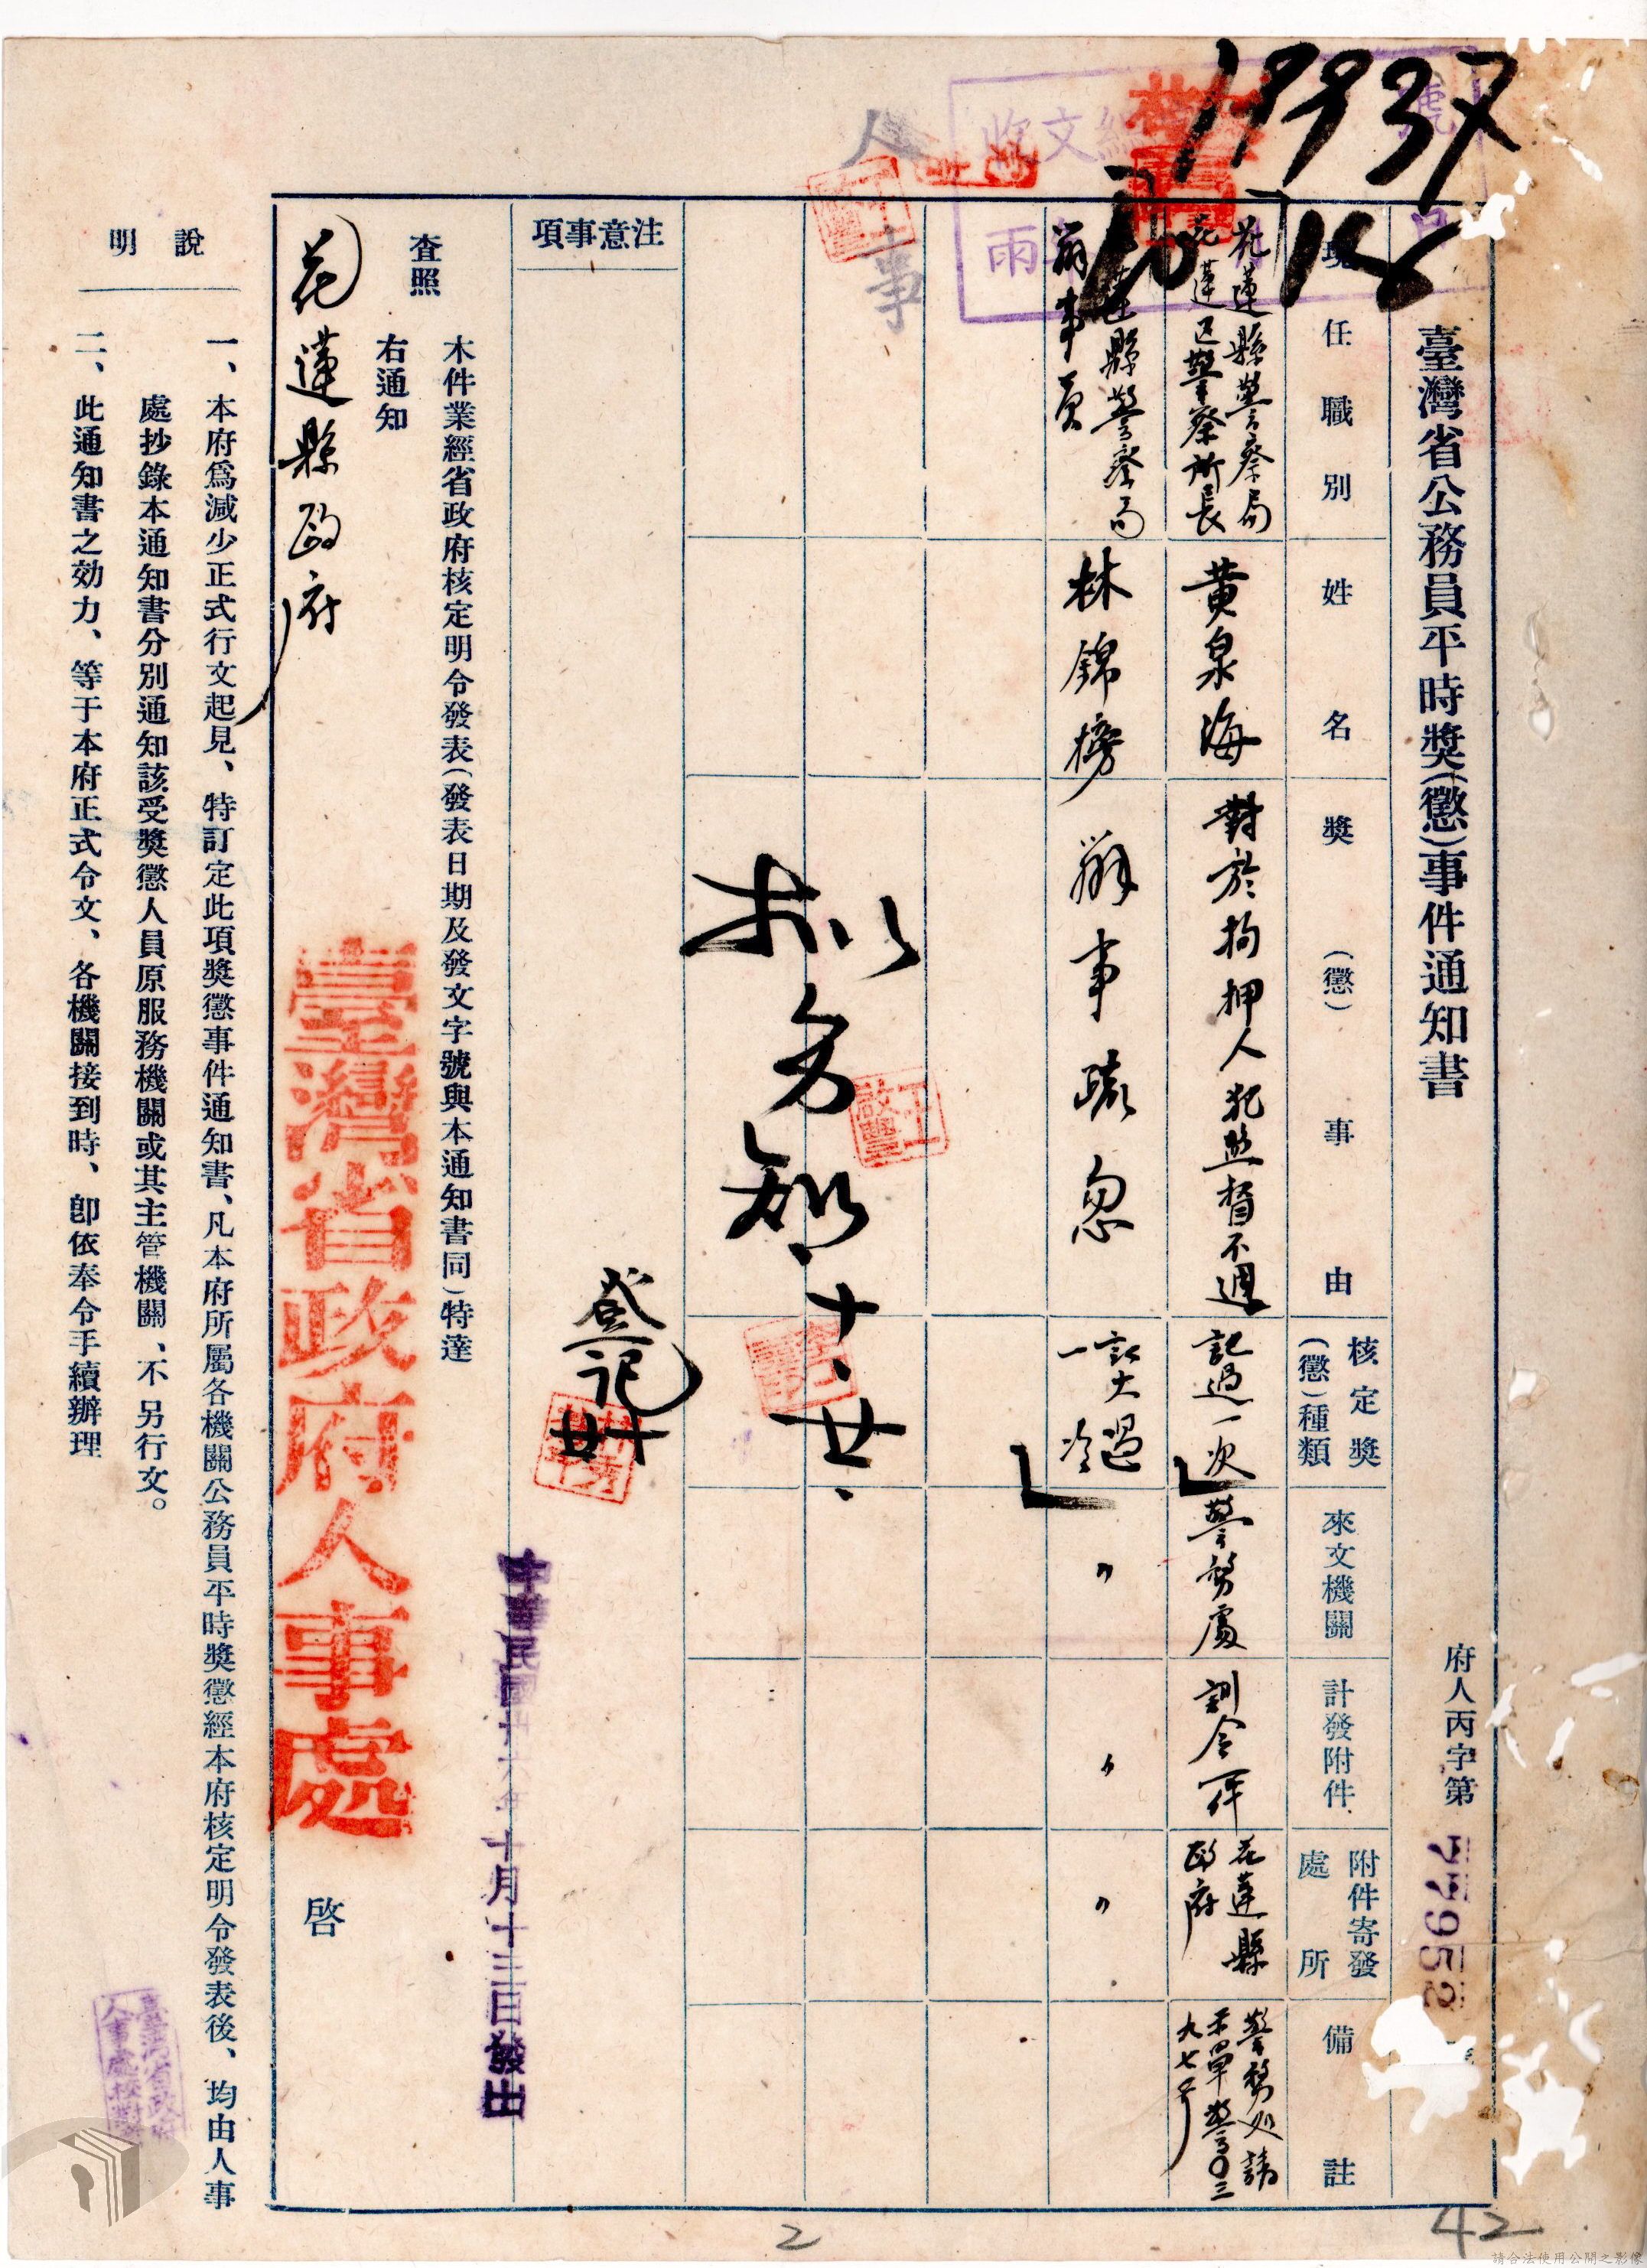 臺灣省公務員平時獎(懲)事件通知書
府人丙字第 77952
19937
10/18
現任職別
姓名
獎(懲)事由
核定獎(懲)種類
來文機關
計發附件
附件寄發處所
備註
花蓮縣警察局
花蓮區警察所長
黄泉海
對於拘押人犯監督不週
記過一次
警務處
訓令一件
花蓮縣
政府
警務處請
九七号
花蓮縣警察局
辦事員
林錦榜
辦事疏忽
記大過
一次
〃
〃
〃
人事
擬分知 十、廿、
登記
注意事項
本件業經省政府核定明令發表(發表日期及發文字號與本通知書同)特達
查照
右通知
花蓮縣政府
臺灣省政府人事處
啓
中華民國卅六年十月十三日發出
說明
一、本府爲減少正式行文起見、特訂定此項獎懲事件通知書、凡本府所屬各機關公務員平時獎懲經本府核定明令發表後、均由人事
處抄錄本通知書分別通知該受獎懲人員原服務機關或其主管機關、不另行文。
二、此通知書之効力、等于本府正式令文、各機關接到時、卽依奉令手續辦理
臺灣省政府
人事處校對
2
42
請合法使用公開之影像